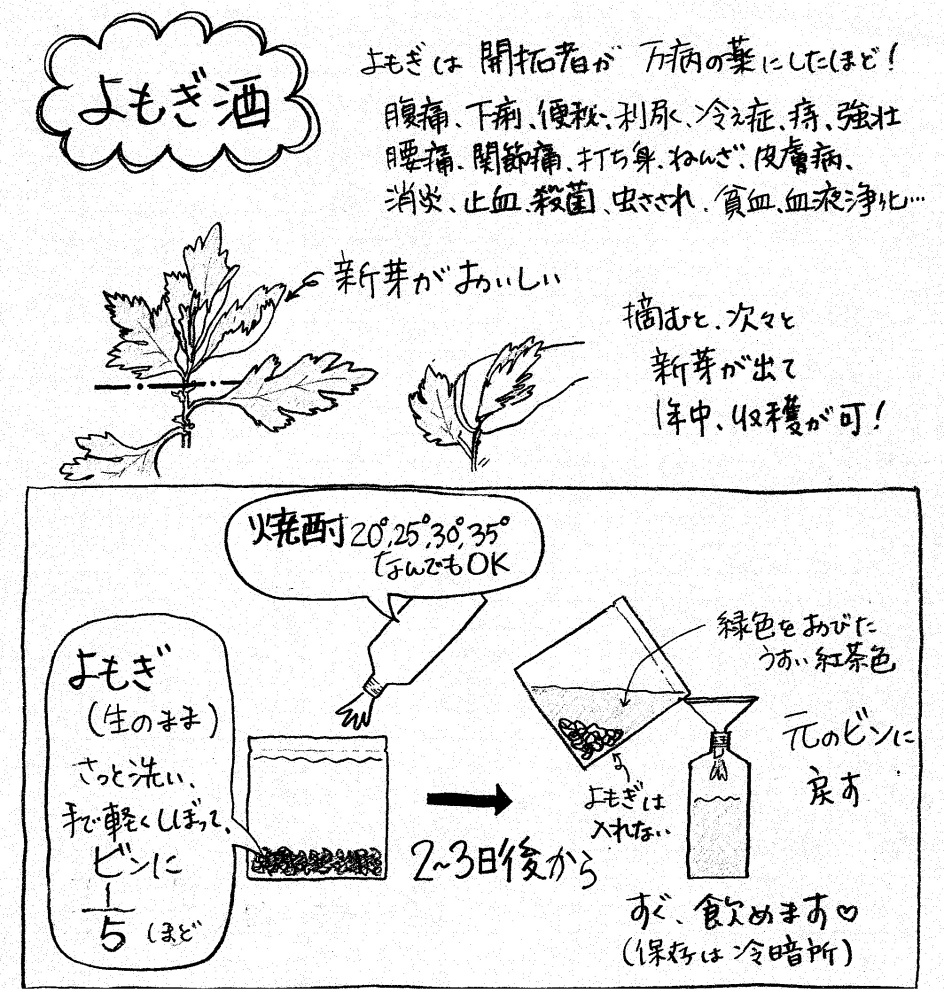 よもぎ酒
よもぎは 開拓者が 万病の薬にしたほど！
腹痛、下痢、便秘、利尿、冷え症、痔、強壮
腰痛、関節痛、打ち身、ねんざ、皮膚病、
消炎、止血、殺菌、虫さされ、貧血、血液浄化…
新芽がおいしい
摘むと、次々と
新芽が出て
1年中、収穫が可！
焼酎20°,25°,30°,35°
なんでもOK
よもぎ
(生のまま)
さっと洗い、
手で軽くしぼって、
ビンに
1/5 ほど
2~3日後から
緑色をおびた
うすい紅茶色
よもぎは
入れない
元のビンに
戻す
すぐ、飲めます♡
(保存は冷暗所)